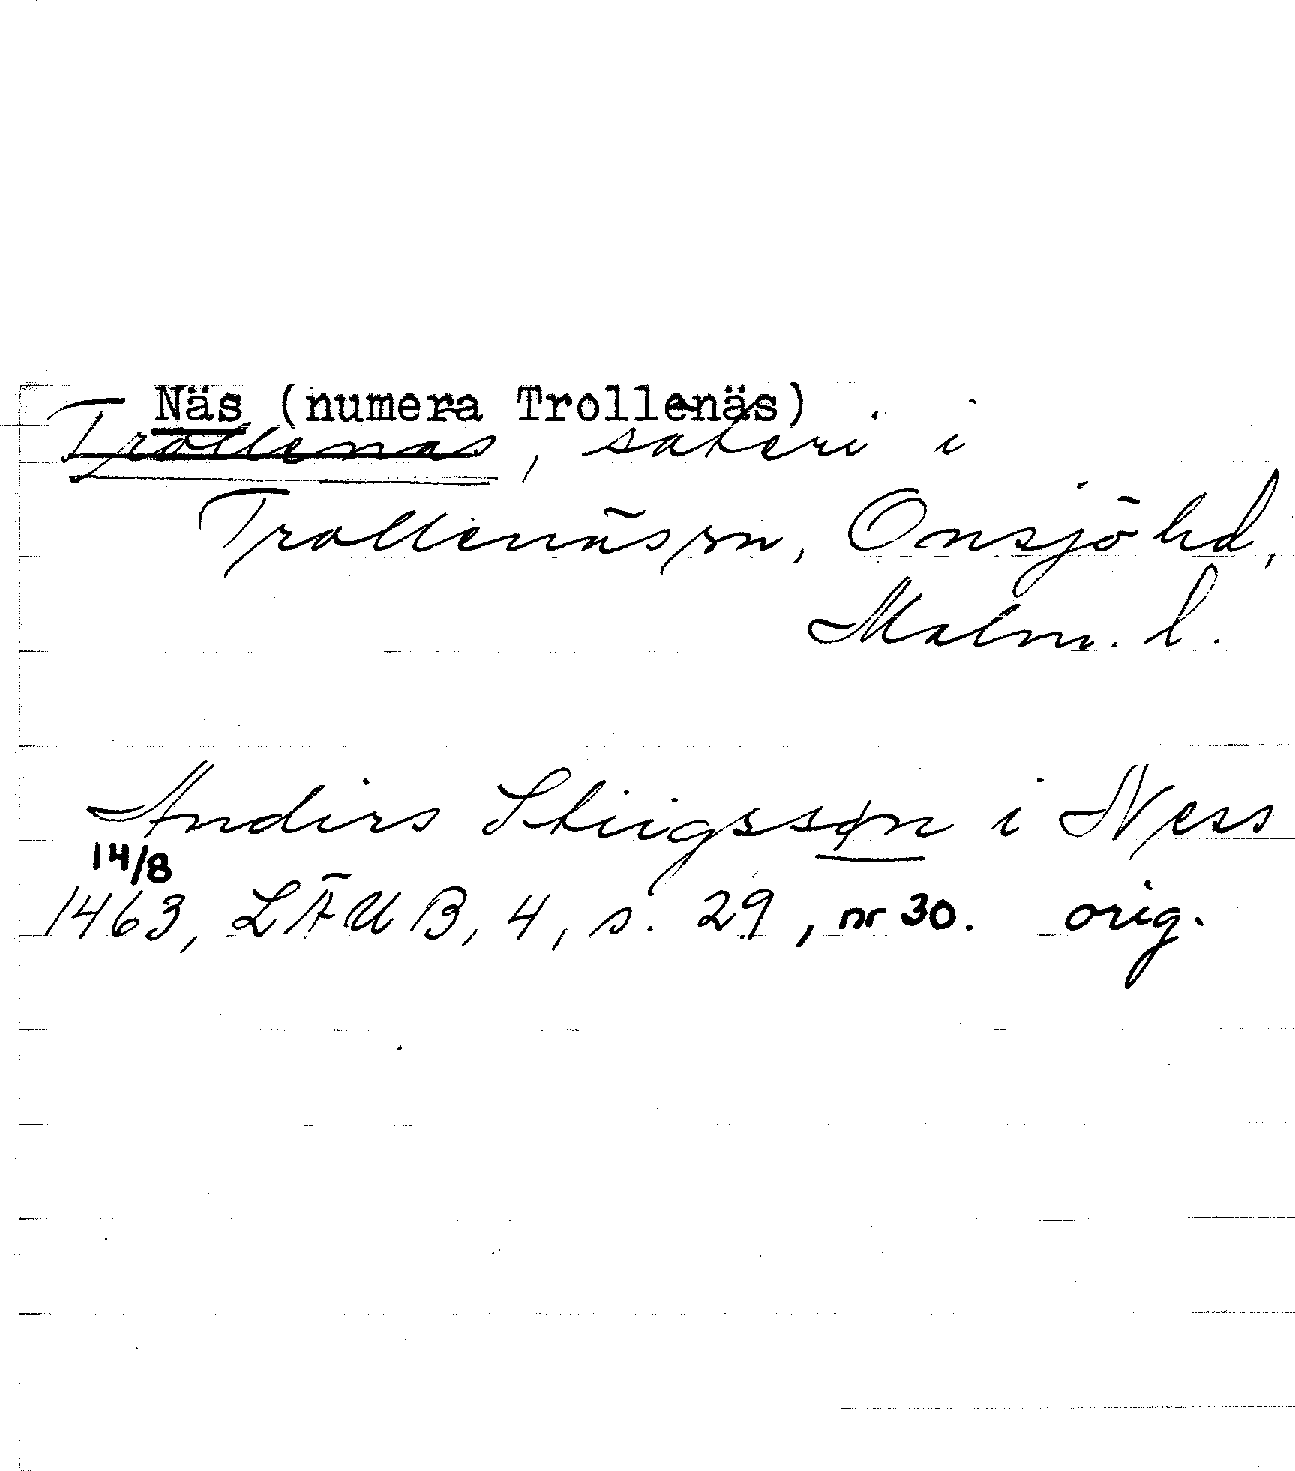 Näs (numera Trollenäs)
Trollenäs, säteri i
Trollenäs sn, Onsjö hd,
Malm. l.
Anders Stiigssøn i Ness
14/8
1463, LÄUB, 4, s. 29, nr 30. orig.